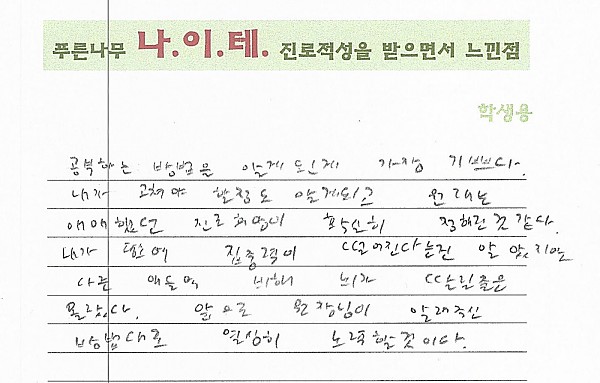 푸른나무 나.이.테. 진로적성을 받으면서 느낀점
학생용
공부하는 방법을 알게 된게 가장 기쁘다.
내가 고쳐야 할점도 알게되고 원래는
애매했던 진로희망이 확실히 정해진 것 같다.
내가 평소에 집중력이 떨어진다는건 알았지만
다른 애들에 비해 뇌가 느린줄은
몰랐다. 앞으로 원장님이 알려주신
방법대로 열심히 노력할것이다.